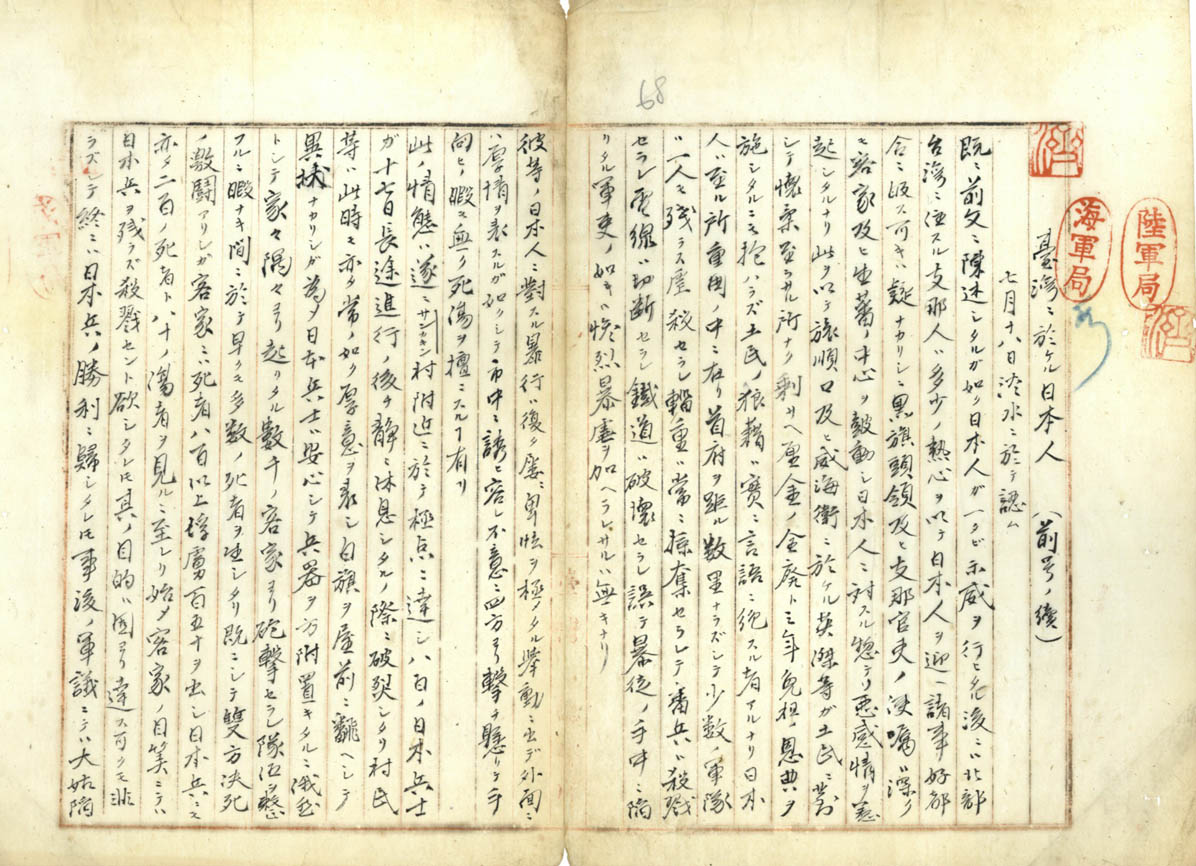 68
陸軍局
海軍局
臺灣ニ於ケル日本人 (前号ノ續)
七月十八日淡水ニ於テ認ム
既ニ前文ニ陳述シタルガ如ク日本人ガ一タビ示威ヲ行ヒタル後ニハ北部
台湾ニ住スル支那人ハ多少ノ熱心ヲ以テ日本人ヲ迎ヘ諸事好都
合ニ至ス可キハ疑ナカリシニ黒旗頭領及ビ支那官吏ノ浸嘱ハ深リ
モ客家及ビ生蕃ノ中心ヲ皷動シ日本人ニ対スル惣テノ悪感情ヲ惹
起シタルナリ此ヲ以テ旅順口及ビ威海衛ニ於ケル英傑等ガ土民ニ對
シテ懐柔至ラザル所ナク剰サヘ厘金ノ全廃ト三年免租ノ恩典ヲ
施シタルニモ抱ハラズ土民ノ狼藉ハ實ニ言語ニ絶スル者アルナリ日本
人ハ至ル所重囲ノ中ニ在リ首府ヲ距ル数里ナラズシテ少数ノ軍隊
ハ一人モ残ラズ屠殺セラレ輜重ハ常ニ掠奪セラレテ番兵ハ殺戮
セラレ電線ハ切断セラレ鐵道ハ破壊セラレ誤テ暴徒ノ手中ニ陥
リタル軍吏ノ如キハ惨烈暴虐ヲ加ヘラレザルハ無キナリ
彼等ノ日本人ニ對スル暴行ハ復タ屡々卑怯ヲ極メタル挙動ニ出デ外面ニ
ハ厚情ヲ表スルガ如クシテ市中ニ誘ヒ容レ不意ニ四方ヨリ撃チ懸リテ手
向ヒノ暇モ無ク死傷ヲ擅ニスルヿ有リ
此ノ情態ハ遂ニサンキン村附近ニ於テ極点ニ達シ八百ノ日本兵士
ガ十七日長途進行ノ後チ静ニ休息シタルノ際ニ破裂シタリ村民
等ハ此時モ亦タ常ノ如ク厚意ヲ表シ白旗ヲ屋前ニ翻ヘシテ
異状ナカリシガ為メ日本兵士ハ安心シテ兵器ヲ方附置キタルニ俄然
トシテ家々隅々ヨリ起リタル數千ノ客家ヨリ砲撃セラレ隊伍ヲ整
フルニ暇ナキ間ニ於テ早クモ多数ノ死者ヲ生シタリ既ニシテ雙方決死
ノ激闘アリシガ客家ニハ死者八百以上俘虜百五十ヲ出シ日本兵ニモ
亦タ二百ノ死者ト八十ノ傷者ヲ見ルニ至レリ始メ客家ノ目算ニテハ
日本兵ヲ残ラズ殺戮セント欲シタレ𪜈其ノ目的ハ固ヨリ達ス可クモ非
ラズシテ終ニハ日本兵ノ勝利ニ歸シタレ𪜈事後ノ軍議ニテハ大姑陥